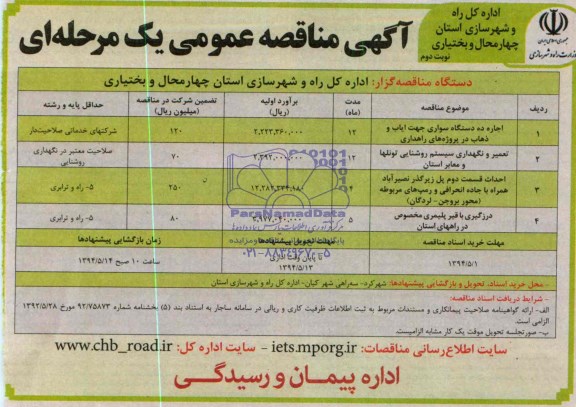 جمهوری اسلامی ایران
وزارت راه و شهرسازی
اداره کل راه
و شهرسازی استان
چهارمحال و بختیاری
نوبت دوم
آگهی مناقصه عمومی یک مرحله‌ای
دستگاه مناقصه‌گزار: اداره کل راه و شهرسازی استان چهارمحال و بختیاری
ردیف موضوع مناقصه مدت (ماه) برآورد اولیه (ریال) تضمین شرکت در مناقصه (میلیون ریال) حداقل پایه و رشته
۱ اجاره ده دستگاه سواری جهت ایاب و ذهاب در پروژه‌های راهداری ۱۲ ۲,۲۲۳,۳۶۰,۰۰۰ ۱۲۰ شرکتهای خدماتی صلاحیت‌دار
۲ تعمیر و نگهداری سیستم روشنایی تونلها و معابر استان ۱۲ ۲,۳۹۲,۰۰۰,۰۰۰ ۷۰ صلاحیت معتبر در نگهداری روشنایی
۳ احداث قسمت دوم پل زیرگذر نصیرآباد همراه با جاده انحرافی و رمپ‌های مربوطه (محور بروجن- لردگان) ۴ ۲۵۰ ۵- راه و ترابری
۴ درزگیری با قیر پلیمری مخصوص در راههای استان ۵ ۳,۹۷۷,۰۴۰,۰۰۰ ۸۰ ۵- راه و ترابری
مهلت خرید اسناد مناقصه مهلت تحویل پیشنهادها زمان بازگشایی پیشنهادها
۱۳۹۴/۵/۱ تا پایان وقت اداری ۱۳۹۴/۵/۱۳ ساعت ۱۰ صبح ۱۳۹۴/۵/۱۴
ParsNamadData
۰۲۱-۸۸۳۴۹۶۷۰-۵
- محل خرید اسناد، تحویل و بازگشایی پیشنهادها: شهرکرد- سه‌راهی شهر کیان- اداره کل راه و شهرسازی استان
- شرایط دریافت اسناد مناقصه:
الف- ارائه گواهینامه صلاحیت پیمانکاری و مستندات مربوط به ثبت اطلاعات ظرفیت کاری و ریالی در سامانه ساجار به استناد بند (۵) بخشنامه شماره ۹۲/۷۵۸۷۳ مورخ ۱۳۹۲/۵/۲۸
الزامی است
ب- صورتجلسه تحویل موقت یک کار مشابه الزامیست.
سایت اطلاع‌رسانی مناقصات: iets.mporg.ir - سایت اداره کل: www.chb_road.ir
اداره پیمان و رسیدگی